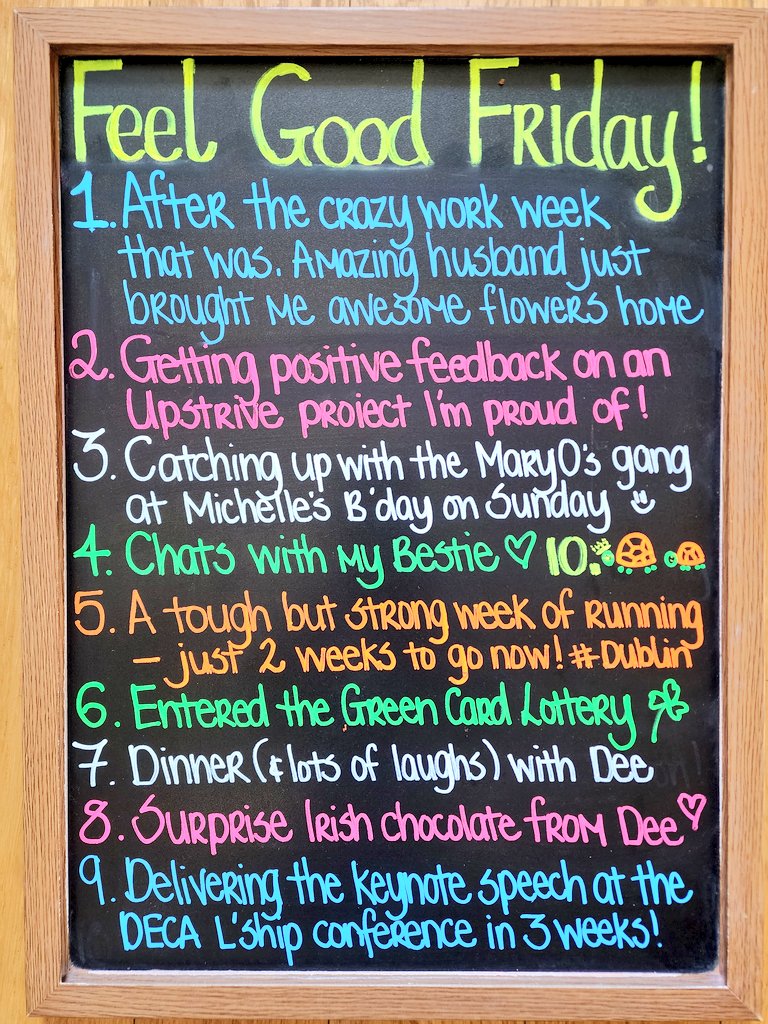 Feel Good Friday!
1. After the crazy work week
that was. Amazing husband just
brought me awesome flowers home
2. Getting positive feedback on an
Upstrive project I'm proud of!
3. Catching up with the MaryO's gang
at Michelle's B'day on Sunday
4. Chats with my Bestie ♡ 10.
5. A tough but strong week of running
– just 2 weeks to go now! #Dublin
6. Entered the Green Card Lottery
7. Dinner (& lots of laughs) with Dee
8. Surprise Irish chocolate from Dee ♡
9. Delivering the keynote speech at the
DECA L'ship conference in 3 weeks!